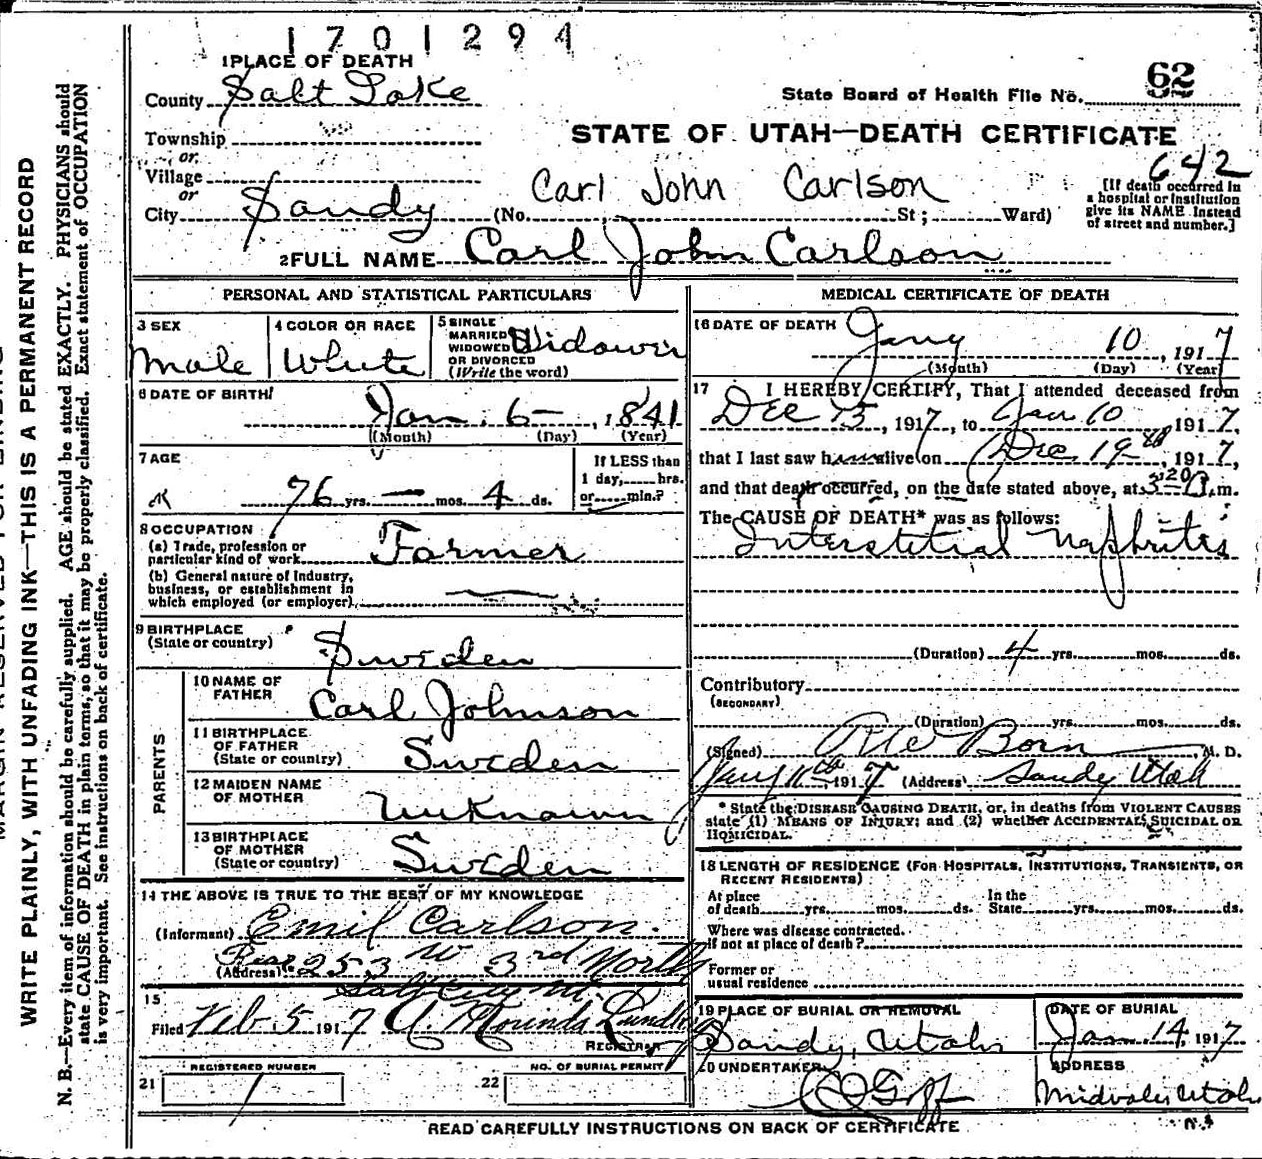 1701294
1 PLACE OF DEATH
County Salt Lake
62
State Board of Health File No.
Township
or
Village
or
City Sandy
STATE OF UTAH—DEATH CERTIFICATE
642
Carl John Carlson
(No. St; Ward)
[If death occurred in a hospital or institution give its NAME instead of street and number.]
2 FULL NAME Carl John Carlson
PERSONAL AND STATISTICAL PARTICULARS
3 SEX
Male
4 COLOR OR RACE
White
5 SINGLE
MARRIED
WIDOWED
OR DIVORCED
(Write the word)
Widower
6 DATE OF BIRTH
Jan. 6 , 1841
(Month) (Day) (Year)
7 AGE
76 yrs. — mos. 4 ds.
If LESS than
1 day, hrs.
or min.?
8 OCCUPATION
(a) Trade, profession or
particular kind of work Farmer
(b) General nature of Industry,
business, or establishment in
which employed (or employer)
9 BIRTHPLACE
(State or country) Sweden
PARENTS
10 NAME OF
FATHER Carl Johnson
11 BIRTHPLACE
OF FATHER
(State or country) Sweden
12 MAIDEN NAME
OF MOTHER Unknown
13 BIRTHPLACE
OF MOTHER
(State or country) Sweden
14 THE ABOVE IS TRUE TO THE BEST OF MY KNOWLEDGE
(Informant) Emil Carlson.
(Address) 253 W 3rd North
Salt City Ut.
15
Filed Feb 5 1917
REGISTRAR
21 REGISTERED NUMBER
1
22 NO. OF BURIAL PERMIT
MEDICAL CERTIFICATE OF DEATH
16 DATE OF DEATH
Jany 10 , 1917
(Month) (Day) (Year)
17 I HEREBY CERTIFY, That I attended deceased from
Dec 15 , 1917, to Jan 10 1917,
that I last saw h alive on Dec 19th , 1917,
and that death occurred, on the date stated above, at 3 20 m.
The CAUSE OF DEATH* was as follows:
Interstitial Nephritis
(Duration) 4 yrs. mos. ds.
Contributory
(SECONDARY)
(Duration) yrs. mos. ds.
(Signed) Born , M. D.
Jany 11th, 1917 (Address) Sandy Utah
* State the DISEASE CAUSING DEATH, or, in deaths from VIOLENT CAUSES
state (1) MEANS OF INJURY; and (2) whether ACCIDENTAL, SUICIDAL OR
HOMICIDAL.
18 LENGTH OF RESIDENCE (FOR HOSPITALS, INSTITUTIONS, TRANSIENTS, OR
RECENT RESIDENTS)
At place
of death yrs. mos. ds.
In the
State yrs. mos. ds.
Where was disease contracted.
if not at place of death?
Former or
usual residence
19 PLACE OF BURIAL OR REMOVAL
Sandy, Utah
DATE OF BURIAL
Jan. 14, 1917
20 UNDERTAKER
Goff
ADDRESS
Midvale, Utah
READ CAREFULLY INSTRUCTIONS ON BACK OF CERTIFICATE
WRITE PLAINLY, WITH UNFADING INK—THIS IS A PERMANENT RECORD
N. B.—Every item of information should be carefully supplied. AGE should be stated EXACTLY. PHYSICIANS should
state CAUSE OF DEATH in plain terms, so that it may be properly classified. Exact statement of OCCUPATION
is very important. See instructions on back of certificate.